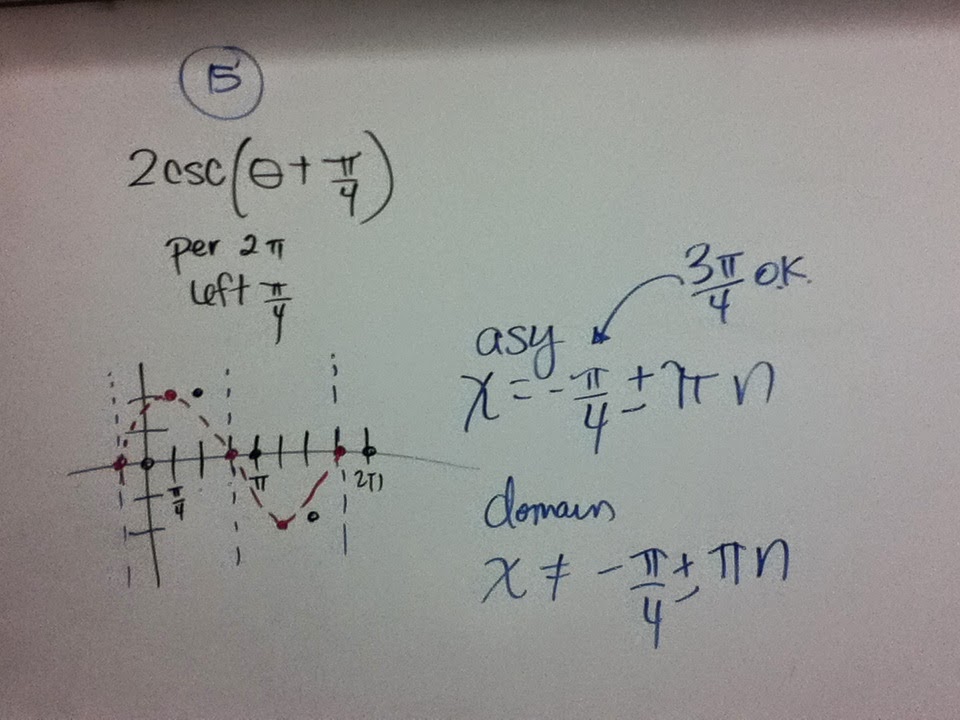 15
2csc(θ + π/4)
per 2π
left π/4
π/4
π
2π
3π/4 o.k.
asy
x = -π/4 ± πn
domain
x ≠ -π/4 ± πn